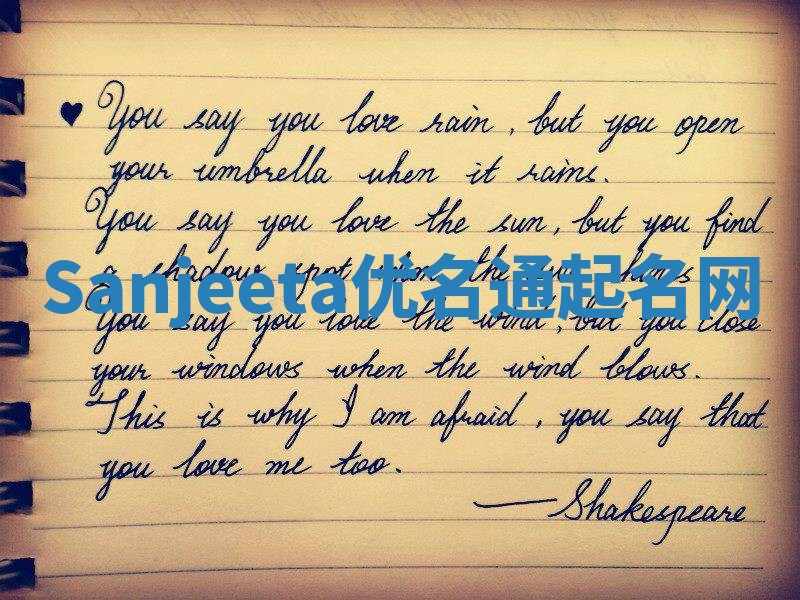 ♥ You say you love rain, but you open
your umbrella when it rains.
You say you love the sun, but you find
a shadow spot when the sun shines
Sanjeeta优名通起名网
You say you love the wind, but you close
your windows when the wind blows.
This is why I am afraid, you say that
you love me too.
—Shakespeare